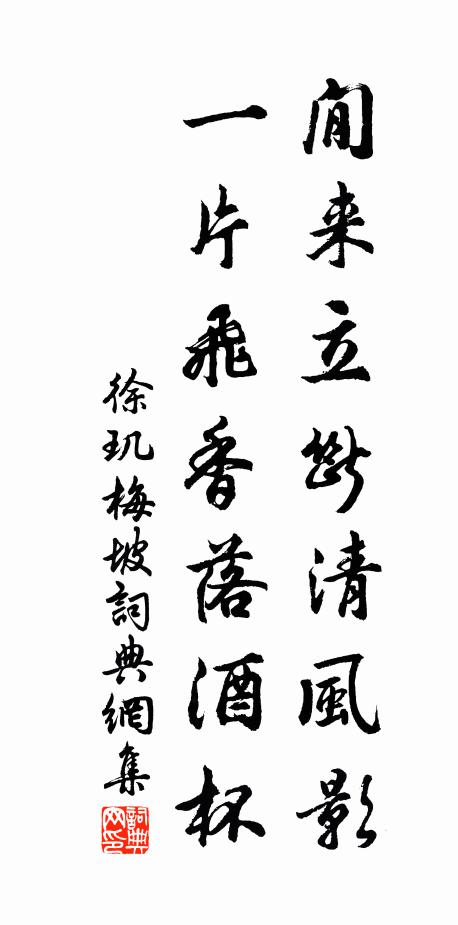 閒来立斷清風影
一片飛香落酒杯
徐玑梅坡詞典網集
詞典网印